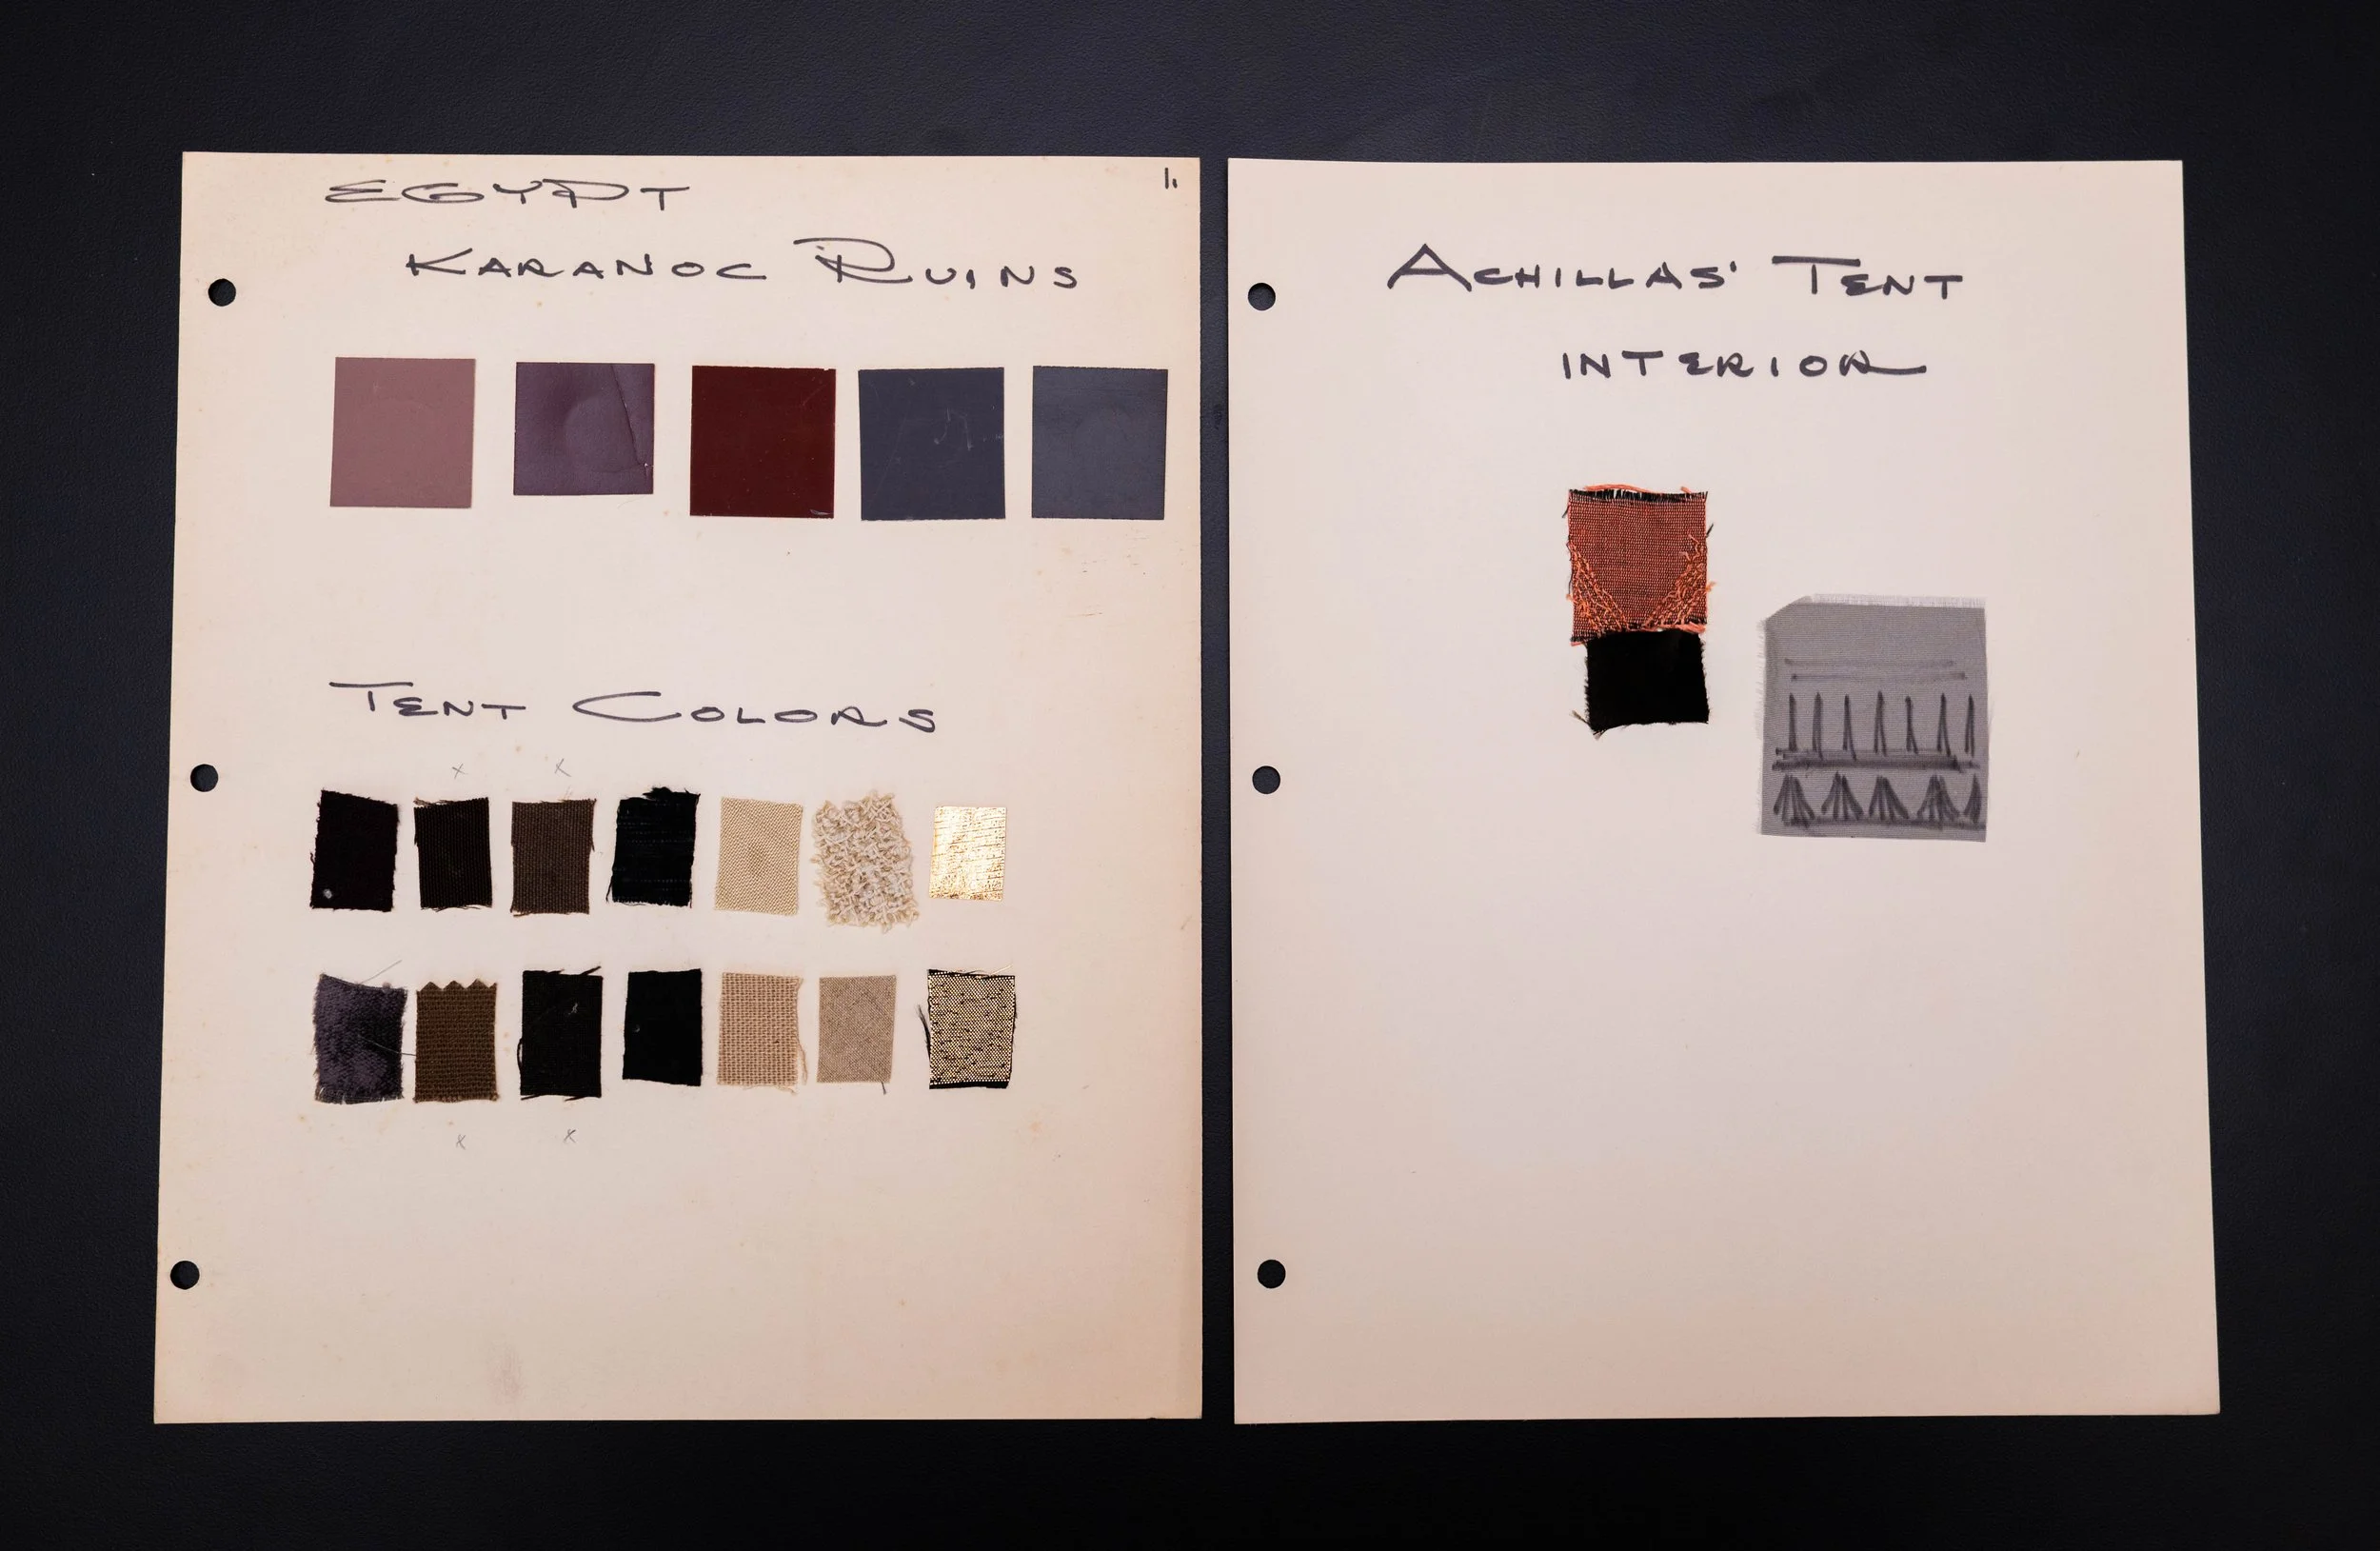 EGYPT
11
KARANOC RUINS
TENT COLORS
x x
x x
ACHILLAS' TENT
INTERIOR